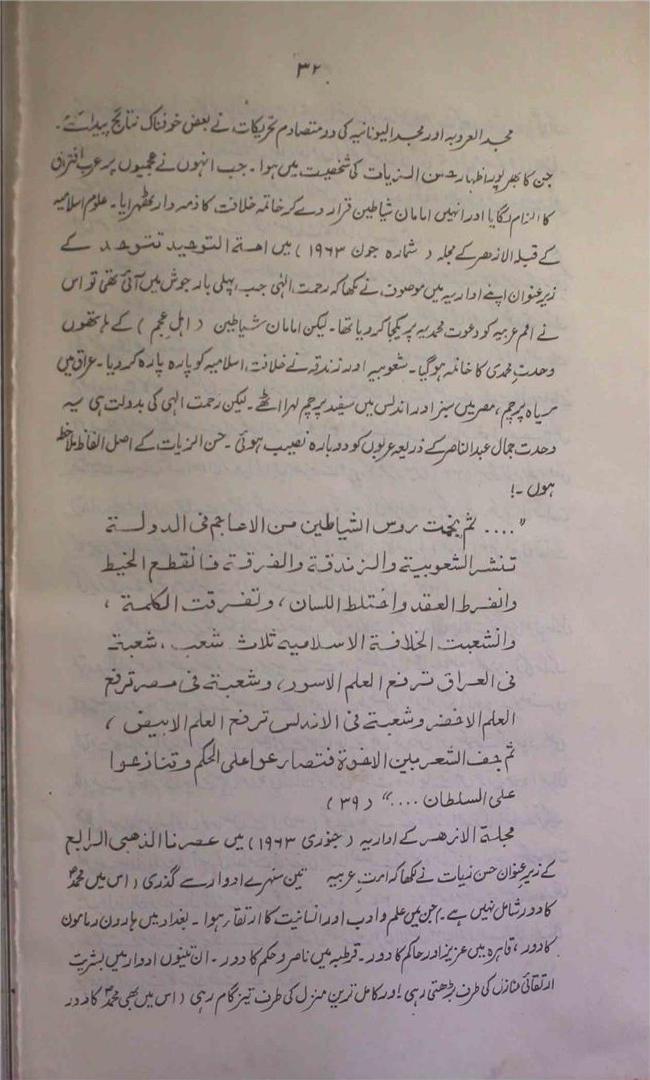 ۳۲
مجد العروبہ اور مجد الیونانیہ کی دو متصادم تحریکات نے بعض خوفناک نتائج پیدا کئے۔
جن کا بھرپور اظہار حسن الزیات کی شخصیت میں ہوا۔ جب انہوں نے عجمیوں پر عرب افتراق
کا الزام لگایا اور انہیں امامان شیاطین قرار دے کر خاتمہ خلافت کا ذمہ دار ٹھہرایا۔ علوم اسلامیہ
کے قبلہ الازھر کے مجلہ (شمارہ جون ۱۹۶۳) میں امۃ التوحید تتوحد کے
زیر عنوان اپنے اداریہ میں موصوف نے لکھا کہ رحمت الٰہی جب پہلی بار جوش میں آئی تھی تو اس
نے امم عربیہ کو دعوت محمدیہ پر یکجا کر دیا تھا۔ لیکن امامان شیاطین (اہل عجم) کے ہاتھوں
وحدت محمدی کا خاتمہ ہو گیا۔ شعوبیہ اور زندقہ نے خلافت اسلامیہ کو پارہ پارہ کر دیا۔ عراق میں
سیاہ پرچم، مصر میں سبز اور اندلس میں سفید پرچم لہرا اٹھے۔ لیکن رحمت الٰہی کی بدولت ہی یہ
وحدت جمال عبدالناصر کے ذریعہ عربوں کو دوبارہ نصیب ہوئی۔ حسن الزیات کے اصل الفاظ ملاحظہ
ہوں۔!
".... ثم نجمت روس الشیاطین من الاعاجم فی الدولة
تنشر الشعوبیة والزندقة والفرقة فانقطع الخیط
وانفرط العقد واختلط اللسان، وتفرقت الکلمة،
وانشعبت الخلافة الاسلامیه ثلاث شعب، شعبة
فی العراق ترفع العلم الاسور، وشعبة فی مصر ترفع
العلم الاخضر وشعبة فی الاندلس ترفع العلم الابیض،
ثم جف الشعر بین الاخوة فتصارعوا علی الحکم وتنازعوا
علی السلطان ...." (۳۹)
مجلة الازھر کے اداریہ (جنوری ۱۹۶۳) میں عصرنا الذھبی الرابع
کے زیر عنوان حسن زیات نے لکھا کہ امت عربیہ تین سنہرے ادوار سے گذری (اس میں محمدؐ
کا دور شامل نہیں ہے۔) جن میں علم و ادب اور انسانیت کا ارتقار ہوا۔ بغداد میں ہارون و مامون
کا دور، قاہرہ میں عزیز اور حاکم کا دور۔ قرطبہ میں ناصر و حکم کا دور۔ ان تینوں ادوار میں بشریت
ارتقائی منازل کی طرف بڑھتی رہی! اور کامل ترین منزل کی طرف تیز گام رہی (اس میں بھی محمدؐ کا دور